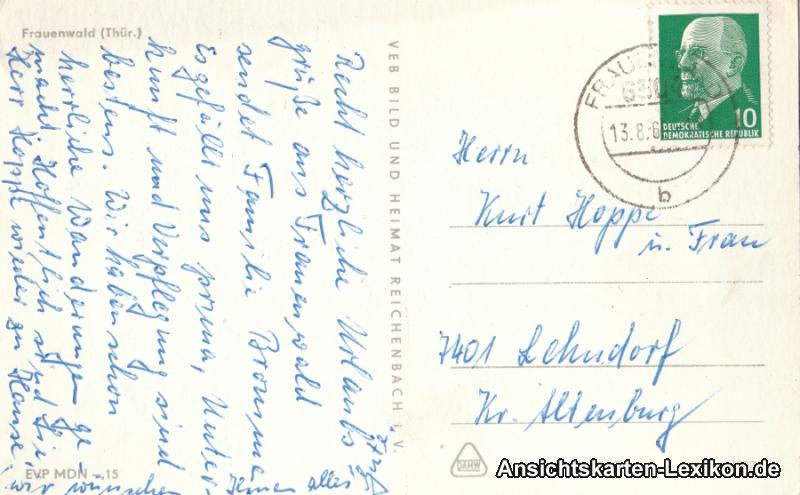 Frauenwald (Thür.)
Recht herzliche Urlaubs
grüße aus Frauenwald
sendet Familie Bromme
Es gefällt uns prima, Unter-
kunft und Verpflegung sind
bestens. Wir haben schon
herrliche Wanderungen ge-
macht. Hoffentlich sind Sie
Herr Hoppe wieder zu Hause,
wir wünschen
Ihnen alles
VEB BILD UND HEIMAT REICHENBACH i. V.
EVP MDN -,15
DAMW
FRAUENWALD
13.8.6
b
10
DEUTSCHE
DEMOKRATISCHE REPUBLIK
Herrn
Kurt Hoppe
u. Frau
7401 Lehndorf
Kr. Altenburg
Ansichtskarten-Lexikon.de